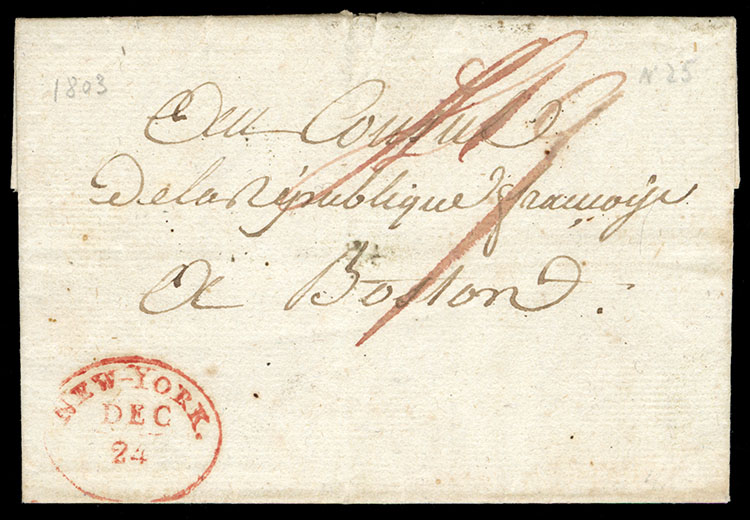 1803
N 25
Au Consul
de la République françoise
a Boston.
NEW-YORK.
DEC
24